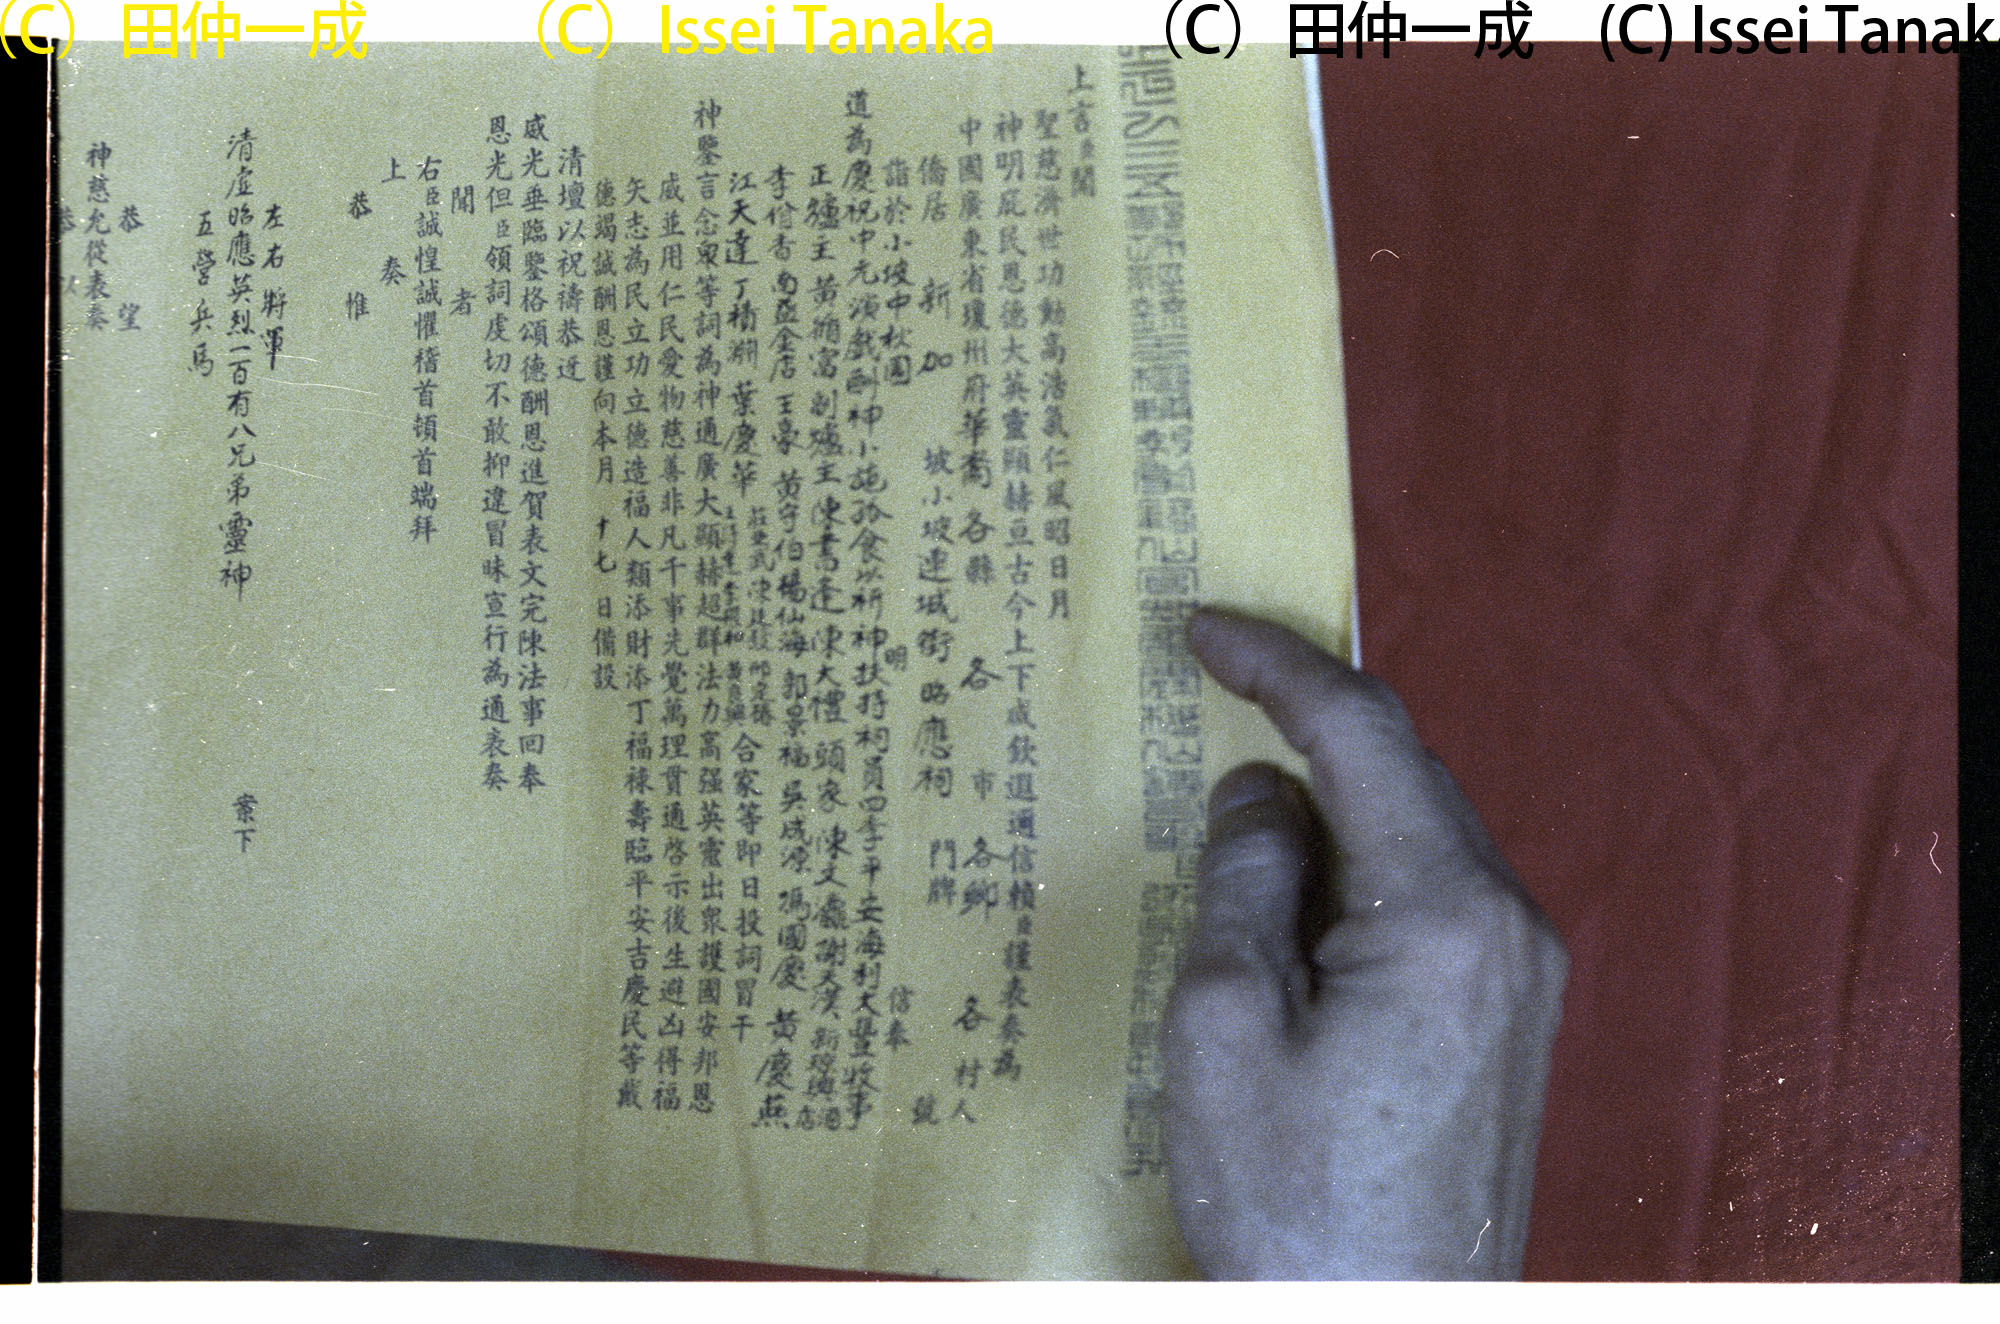 (C) 田仲一成 (C) Issei Tanaka (C) 田仲一成 (C) Issei Tanaka
上言臣聞
聖慈濟世功勳高浩氣仁風昭日月
神明庇民恩德大英靈顯赫亘古今上下咸欽遐邇信賴臣謹表奏為
中國廣東省瓊州府華喬各縣 各 市 各鄉 各村人
僑居 新加 坡小坡連城街昭應祠 門牌 號
詣於小坡中秋園 明 信奉
道為慶祝中元演戲酬神小施孤食以祈神扶持祠員四季平安海利大豐收事
正爐主 黃循富 副爐主 陳書逢 陳大禮 頭家 陳文 謝天漢 新瓊興酒店
李俗香 南亞金店 王豪 黃守伯 楊仙海 郭景福 吳成源 馮國慶 黃慶燕
江天達 丁積淵 葉慶華 合家等即日投詞冒干
神鑒言念衆等詞為神通廣大顯赫超群法力高强英靈出衆護國安邦恩
威並用仁民愛物慈善非凡千事先覺萬理貫通啓示後生避凶得福
矢志為民立功立德造福人類添財添丁福祿壽臨平安吉慶民等戴
德竭誠酬恩謹向本月 十七 日備設
清壇以祝禱恭迓
威光垂臨鑒格頌德酬恩進賀表文完陳法事回奉
恩光但臣領詞虔切不敢抑違冒昧宣行為通表奏
聞 者
右臣誠惶誠懼稽首頓首端拜
上 奏
恭 惟
左右將軍
清虛昭應英烈一百有八兄弟靈神 案下
五營兵馬
恭 望
神慈允從表奏
恭 以